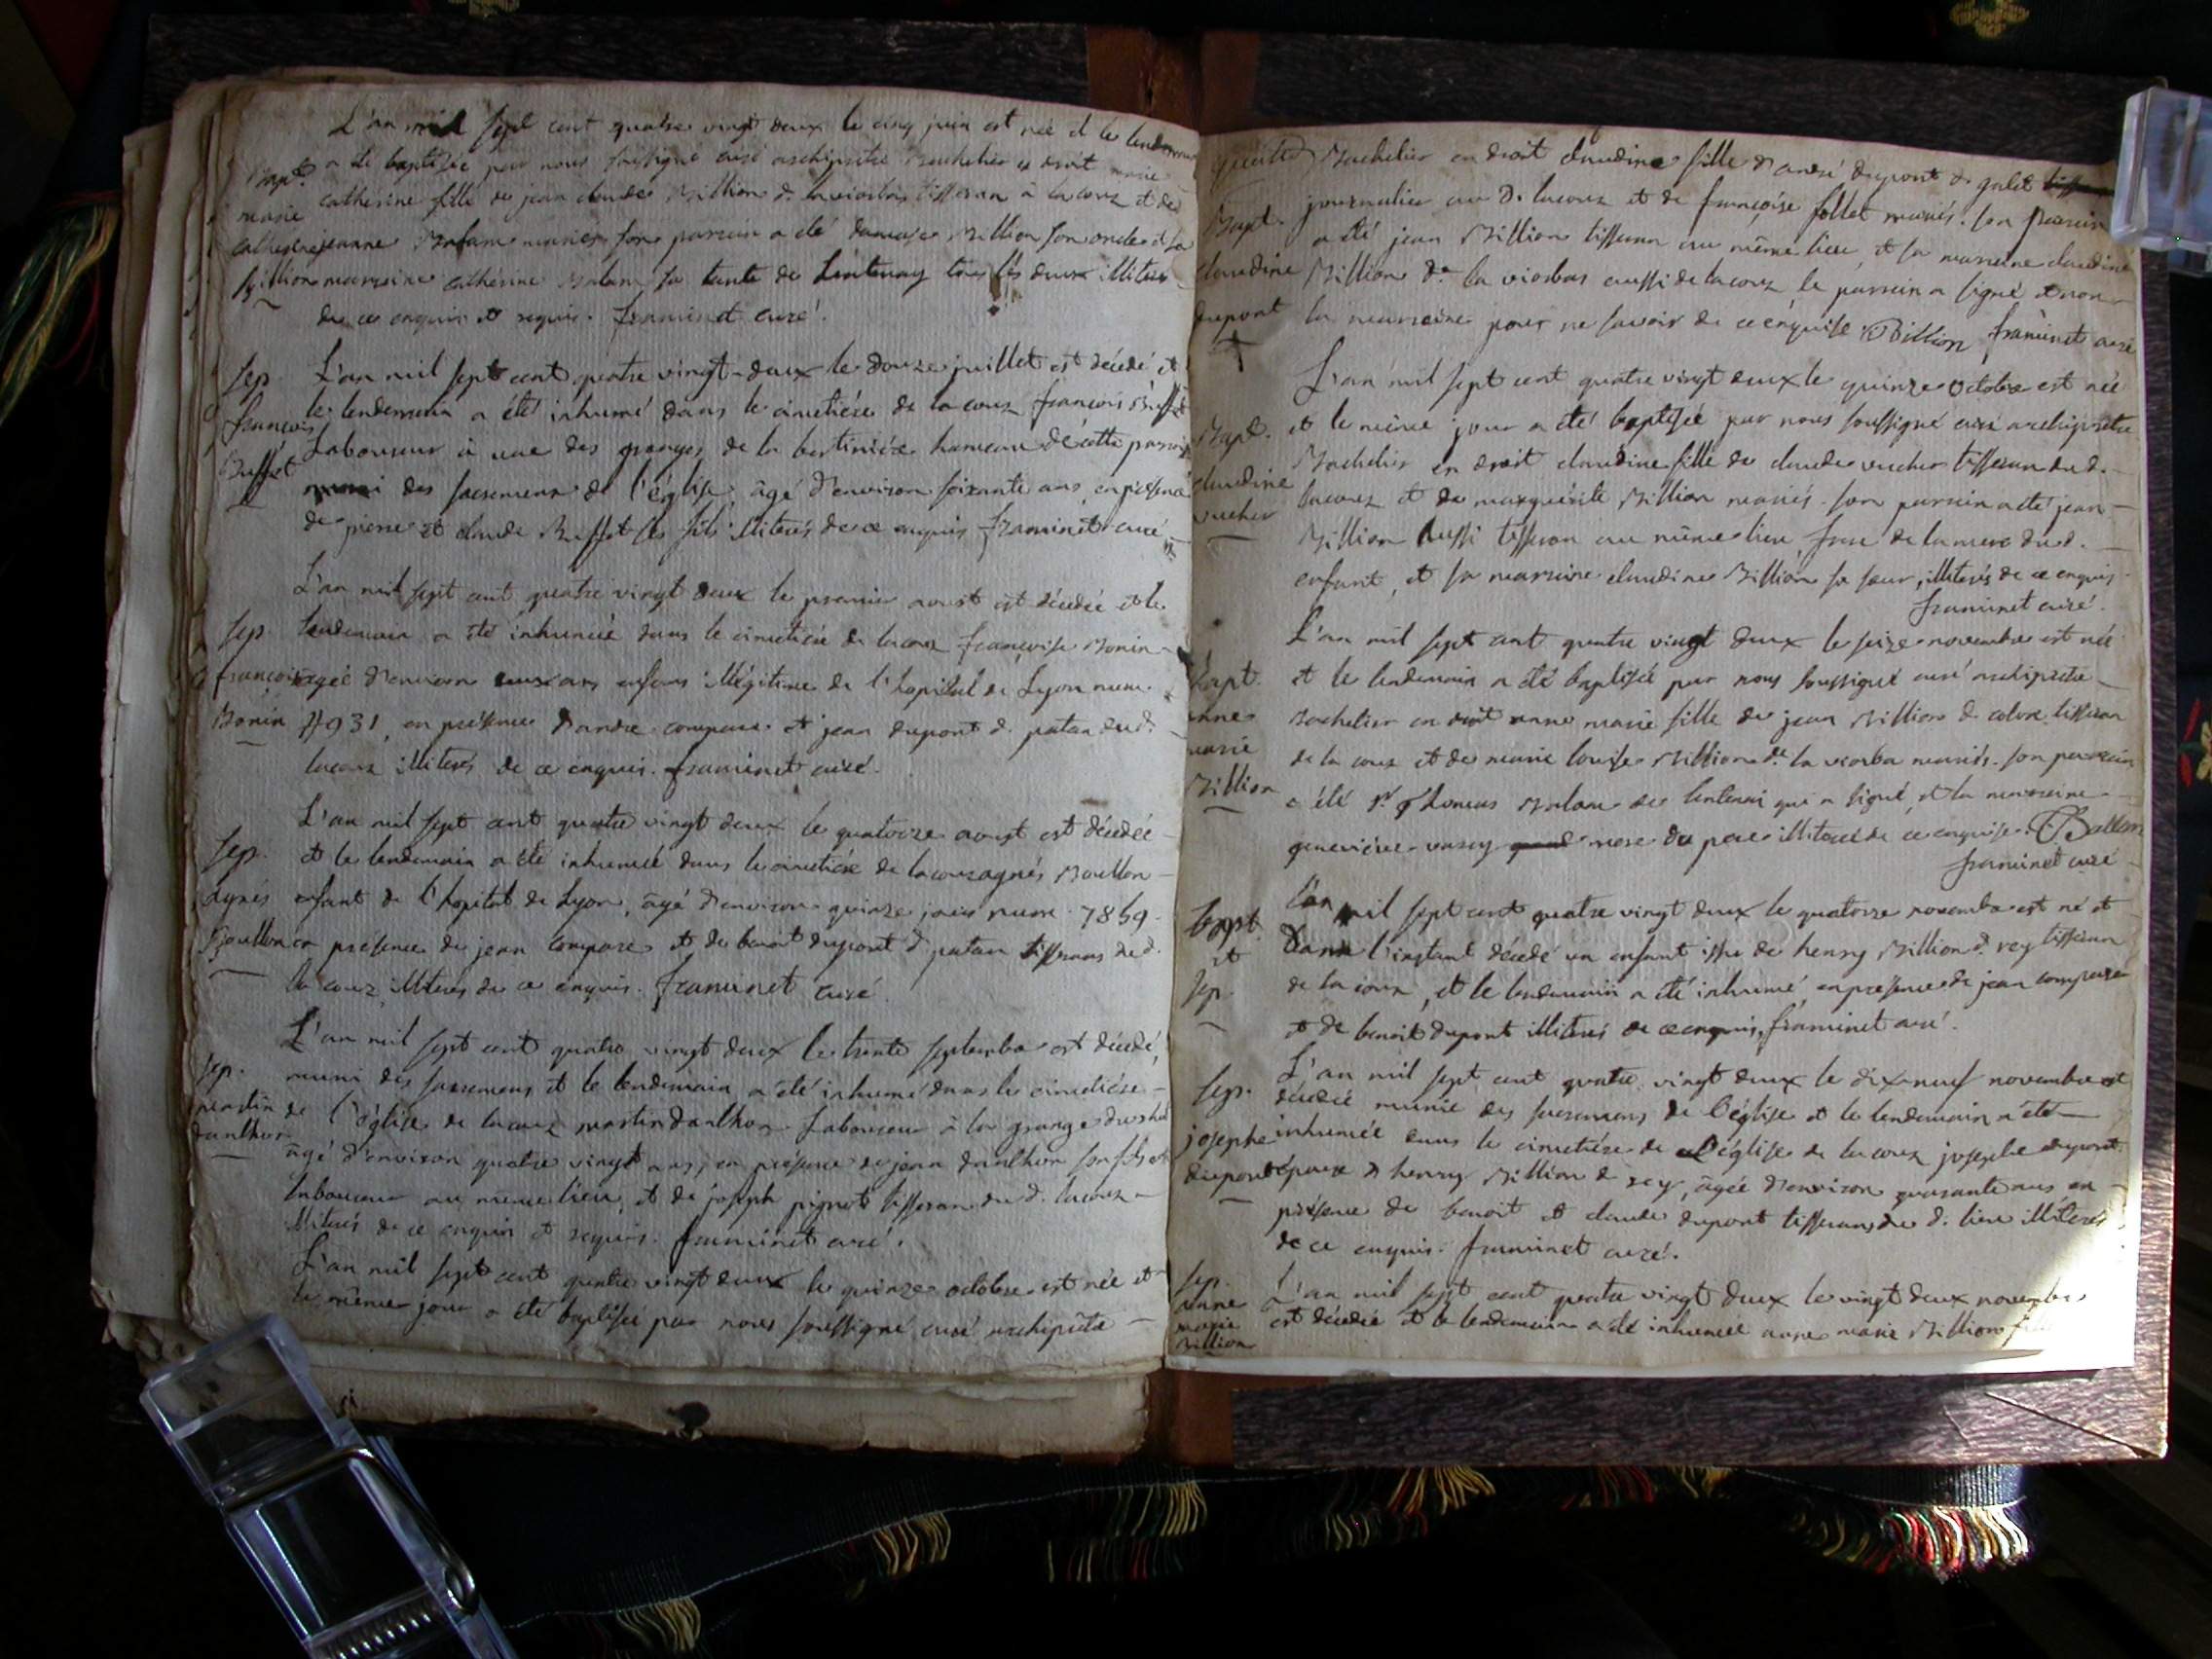 L'an mil sept cent quatre vingt deux le cinq juin est née et le lendemain
Bapt. a été baptisée par nous soussigné curé archiprêtre Bachelier en droit marie
marie catherine fille de jean claude Billion d. laviorbas tisseran à lacoux et de
catherine jeanne Balam mariés son parrain a été Billion son oncle et sa
Billion marraine catherine Balam sa tante de Lentenay tous les deux illiterés
de ce enquis et requis. framinet curé.
Sep. L'an mil sept cent quatre vingt-deux le douze juillet est décédé et
le lendemain a été inhumé dans le cimetière de lacoux françois Buffet
françois Laboureur à une des granges de la bertinière hameau de cette paroisse
Buffet muni des sacremens de l'église, âgé d'environ soixante ans, en présence
de pierre et claude Buffet ses fils illiterés de ce enquis framinet curé
L'an mil sept cent quatre vingt deux le premier aoust est décédée et le
Sep. lendemain a été inhumée dans le cimetière de lacoux françoise Bonin
françoise âgée d'environ ans enfant illégitime de l'hopital de Lyon num.
Bonin en présence d'andre compare et jean dupont d. patan dud.
lacoux illiterés de ce enquis. framinet curé.
L'an mil sept cent quatre vingt deux le quatorze aoust est décédée
Sep. et le lendemain a été inhumée dans le cimetière de lacoux agnés Boullon
agnés enfant de l'hopital de Lyon, âgé d'environ quinze jours num. 7869
Boullon en présence de jean compare et de benoit dupont d. patan tisserans dud.
la coux illiterés de ce enquis. framinet curé.
L'an mil sept cent quatre vingt deux le trente septembre est décédé,
Sep. muni des sacremens et le lendemain a été inhumé dans le cimetière
martin de l'église de lacoux martin danthon Laboureur à la grange
danthon âgé d'environ quatre vingt ans, en présence de jean danthon son fils et
laboureur au même lieu, et de joseph pignet tisseran du d. lacoux
illiterés de ce enquis et requis. framinet curé.
L'an mil sept cent quatre vingt deux le quinze octobre est née et
le même jour a été baptisée par nous soussigné curé archiprêtre
Bachelier en droit claudine fille d'andré dupont d. galet
Bapt. journalier au d. lacoux et de françoise follet mariés. son parrain
a été jean Billion tisseran au même lieu, et sa marraine claudine
claudine Billion de la viorbas aussi de lacoux, le parrain a signé et non
dupont la marraine pour ne savoir de ce enquise Billion framinet curé
L'an mil sept cent quatre vingt deux le quinze octobre est née
Bapt. et le même jour a été baptisée par nous soussigné curé archiprêtre
Bachelier en droit claudine fille de claude vucher tisseran du d.
claudine lacoux et de marguerite Billion mariés. son parrain a été jean
vucher Billion aussi tisseran au même lieu, frere de la mere du d.
enfant, et sa marraine claudine Billion sa sœur, illiterés de ce enquis.
framinet curé.
L'an mil sept cent quatre vingt deux le seize novembre est née
Bapt. et le lendemain a été baptisée par nous soussigné curé archiprêtre
anne Bachelier en droit anne marie fille de jean Billion d. tisseran
marie de la coux et de marie louise Billion de la viorba mariés. son parrain
Billion a été Balam de lentenai qui a signé, et la marraine
geneviève mere du pere illiterée de ce enquise. Ballam
framinet curé
Bapt. L'an mil sept cent quatre vingt deux le quatorze novembre est né et
et dans l'instant décédé un enfant issu de henry Billion d. rey tisseran
Sep. de la coux, et le lendemain a été inhumé, en presence de jean compare
et de benoit dupont illiterés de ce enquis, framinet curé.
L'an mil sept cent quatre vingt deux le dix-neuf novembre est
Sep. décédée munie des sacremens de l'église et le lendemain a été
josephe inhumée dans le cimetière de l'église de lacoux josephe dupont
dupont épouse d henry Billion d rey, âgée d'environ quarante ans en
présence de benoit et claude dupont tisseran du d. lieu illiterés
de ce enquis. framinet curé.
Sep. L'an mil sept cent quatre vingt deux le vingt deux novembre
anne est décédée et le lendemain a été inhumée anne marie Billion fille
marie
Billion